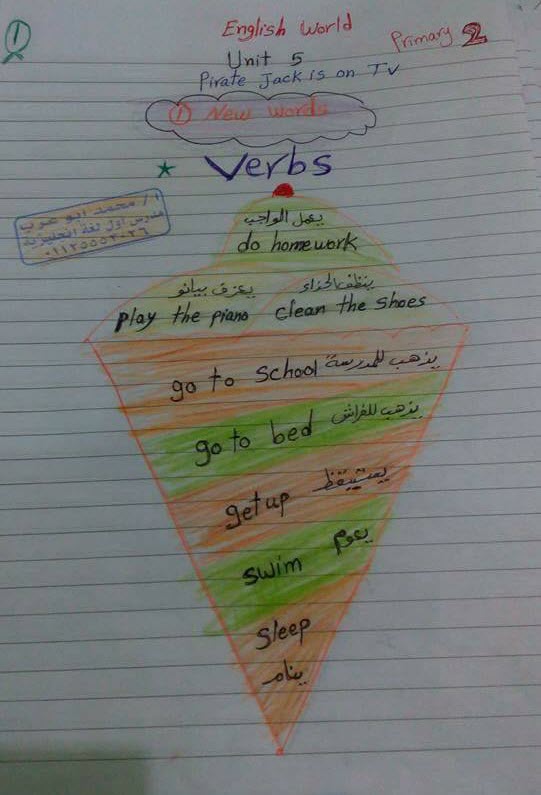 1
English World
Primary 2
Unit 5
Pirate Jack is on TV
① New words
Verbs
أ/ محمد ابو عرب
مدرس اول لغة انجليزية
يعمل الواجب
do homework
يعزف بيانو ينظف الحذاء
play the piano clean the shoes
go to school يذهب للمدرسة
go to bed يذهب للفراش
get up يستيقظ
swim يعوم
sleep
ينام